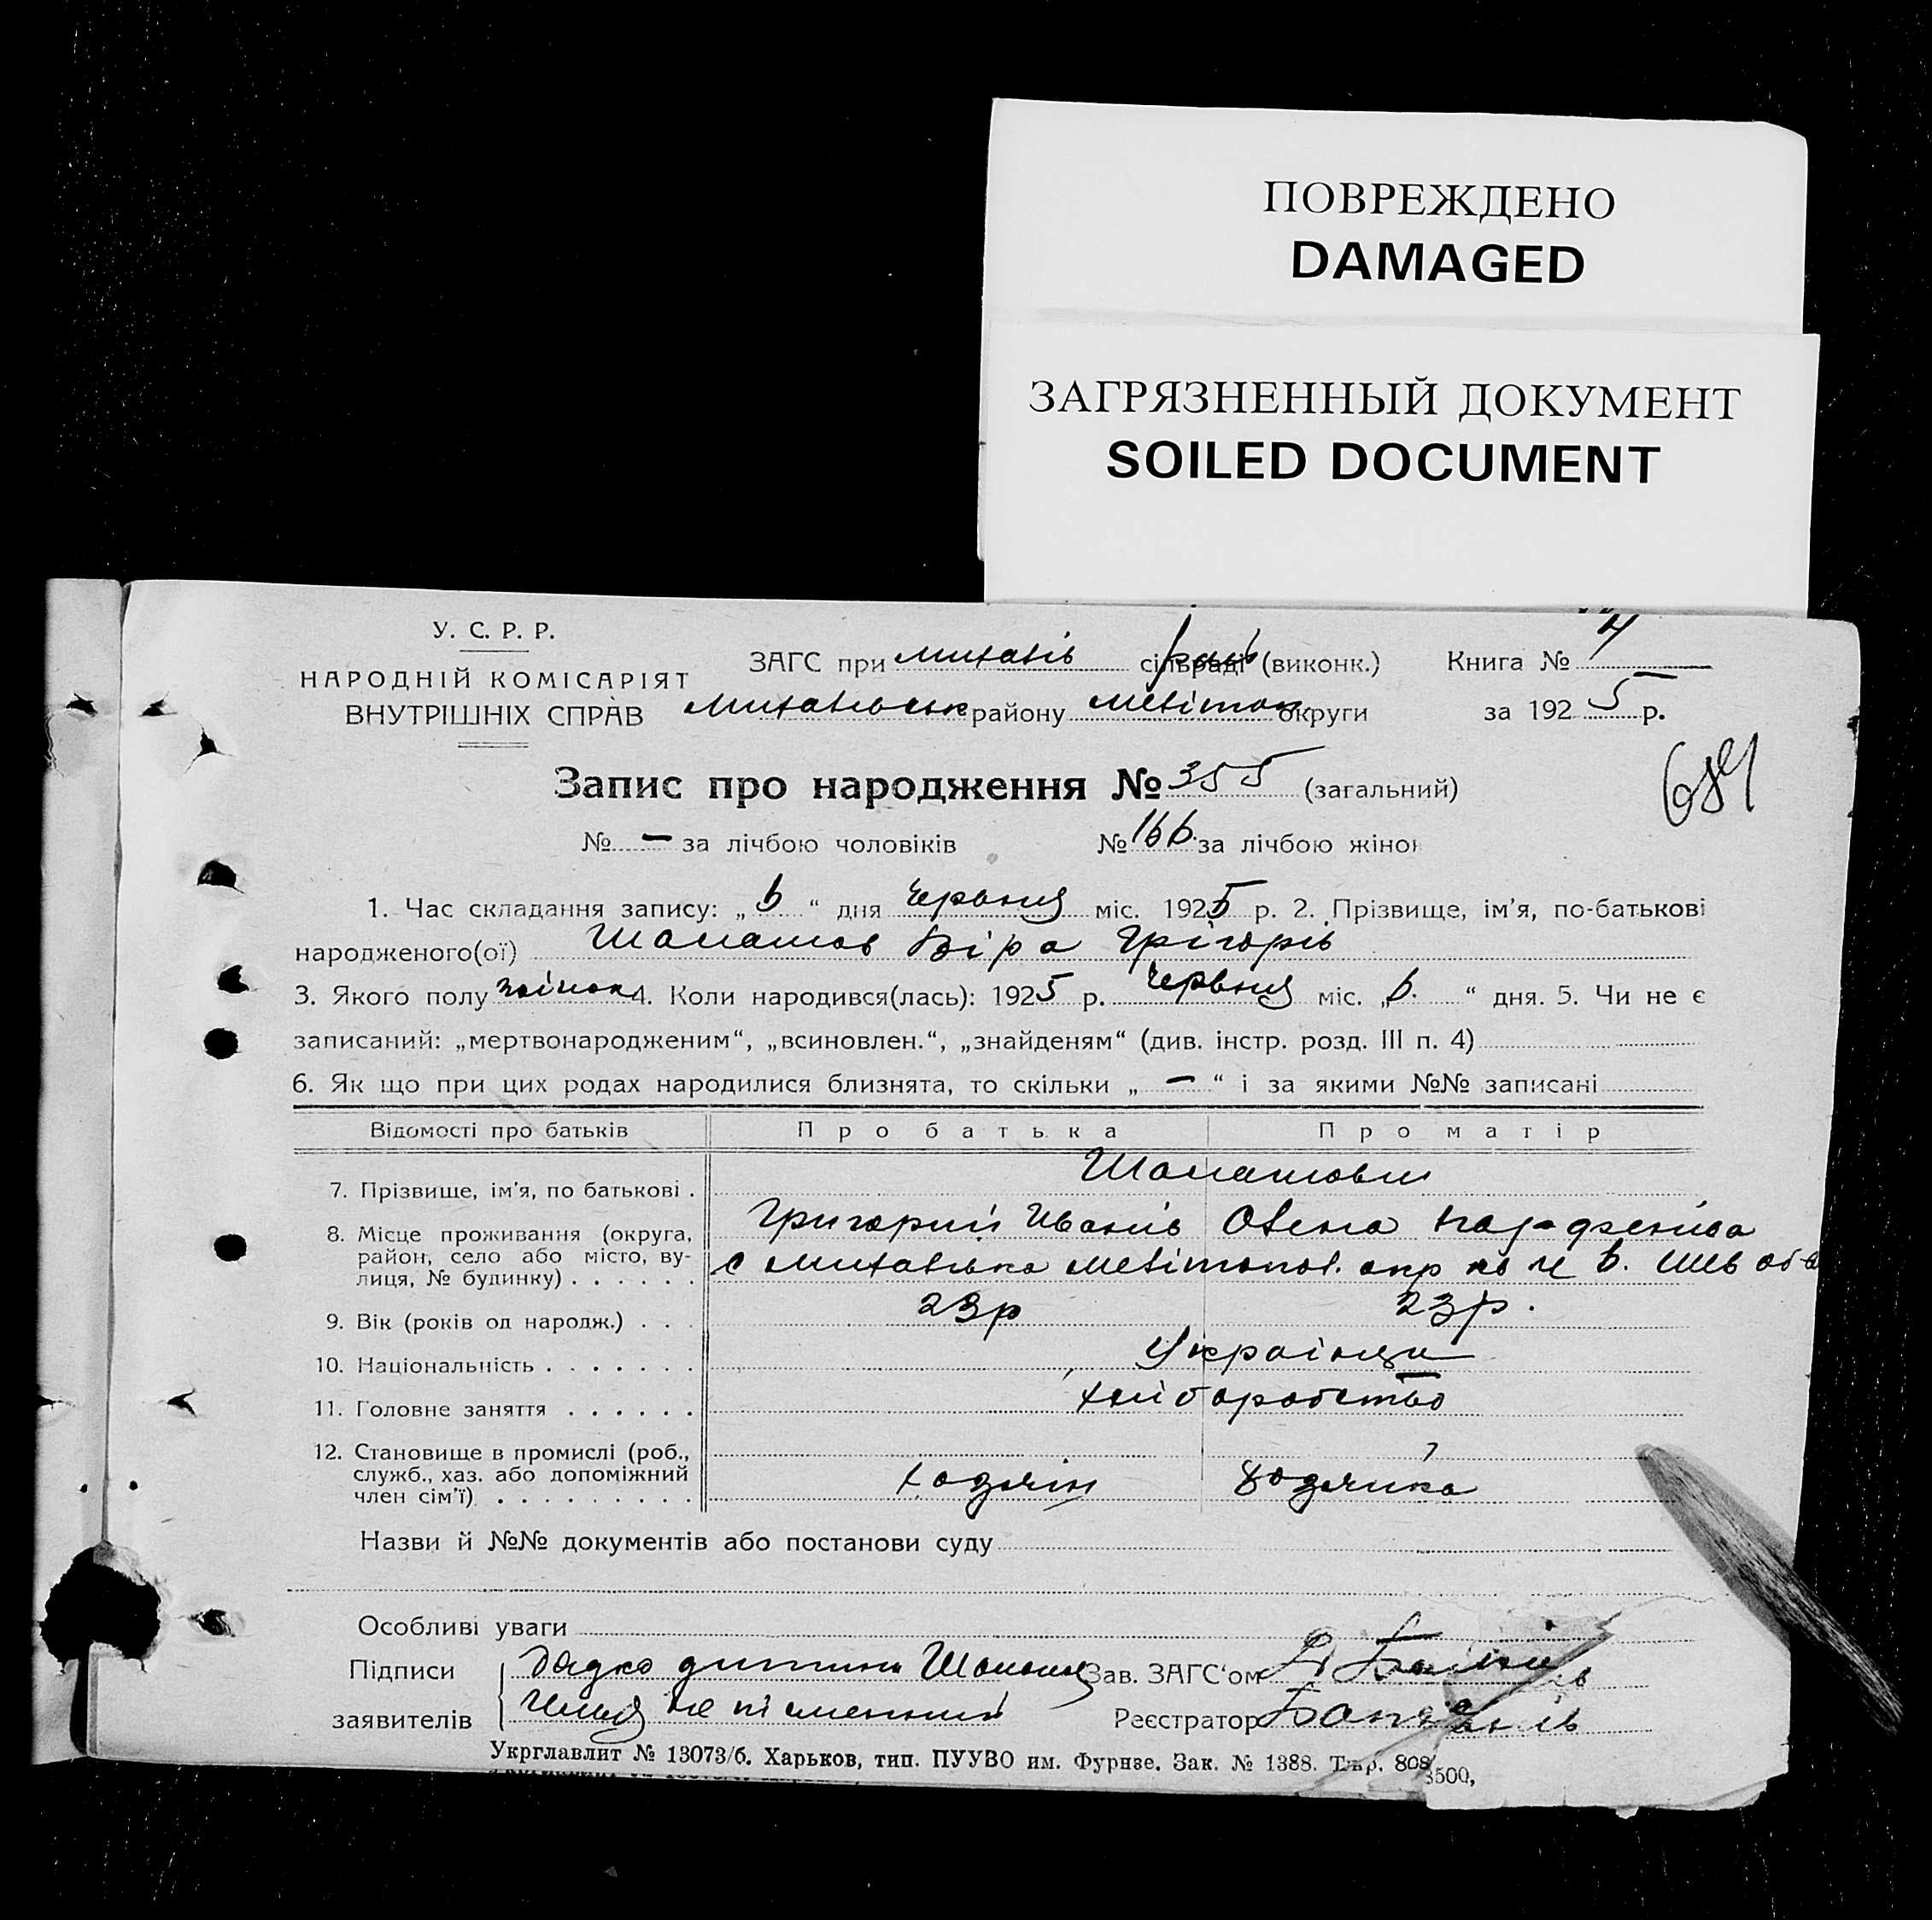 ПОВРЕЖДЕНО
DAMAGED
ЗАГРЯЗНЕННЫЙ ДОКУМЕНТ
SOILED DOCUMENT
У. С. Р. Р.
НАРОДНІЙ КОМІСАРІЯТ
ВНУТРІШНІХ СПРАВ
ЗАГС при Михайлів сільраді (виконк.) Книга № 4
Михайлівськ району Мелітоп округи за 1925 р.
684
Запис про народження № 355 (загальний)
№ — за лічбою чоловіків № 166. за лічбою жінок
1. Час складання запису: „6“ дня Червня міс. 1925 р. 2. Прізвище, ім’я, по-батькові
народженого(ої) Шаматов Віра Грігорів
3. Якого полу жіноч 4. Коли народився(лась): 1925 р. Червня міс. „6.“ дня. 5. Чи не є
записаний: „мертвонародженим“, „всиновлен.“, „знайденям“ (див. інстр. розд. III п. 4)
6. Як що при цих родах народилися близнята, то скільки „—“ і за якими №№ записані
Відомості про батьків Про батька Про матір
7. Прізвище, ім’я, по батькові .
8. Місце проживання (округа, район, село або місто, вулиця, № будинку) . . . . . .
Григорий Иванів Олена
с Михайлівка Мелітопол. окр
9. Вік (років од народж.) . . . 23р 23р.
10. Національність . . . . . . . Українци
11. Головне заняття . . . . . . хліборобство
12. Становище в промислі (роб., служб., хаз. або допоміжний член сім’ї) . . . . . . . . . хозяїн хозяїка
Назви й №№ документів або постанови суду
Особливі уваги
Підписи Дядко дитини Зав. ЗАГС‘ом
заявителів не пісменний Реєстратор
Укрглавлит № 13073/б. Харьков, тип. ПУУВО им. Фурнзе. Зак. № 1388. Тир. 808
3500,